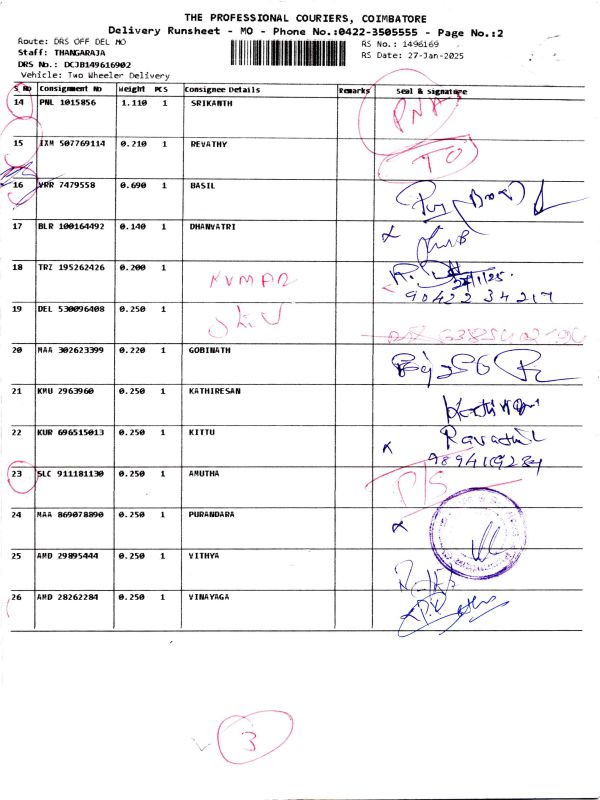 THE PROFESSIONAL COURIERS, COIMBATORE
Delivery Runsheet - MO - Phone No.:0422-3505555 - Page No.:2
Route: DRS OFF DEL MO
RS No.: 1496169
Staff: THANGARAJA
RS Date: 27-Jan-2025
DRS No.: DCJB149616902
Vehicle: Two Wheeler Delivery
S No Consignment No Weight PCS Consignee Details Remarks Seal & signature
14 PNL 1015856 1.110 1 SRIKANTH PNA
15 IXM 507769114 0.210 1 REVATHY TO
16 VRR 7479558 0.690 1 BASIL
17 BLR 100164492 0.140 1 DHANVATRI
18 TRZ 195262426 0.200 1 KUMAR
90422 34217
19 DEL 530096408 0.250 1
20 MAA 302623399 0.220 1 GOBINATH
21 KMU 2963960 0.250 1 KATHIRESAN
22 KUR 696515013 0.250 1 KITTU
23 SLC 911181130 0.250 1 AMUTHA P/S
24 MAA 869078890 0.250 1 PURANDARA
25 AMD 29895444 0.250 1 VITHYA
26 AMD 28262284 0.250 1 VINAYAGA
3